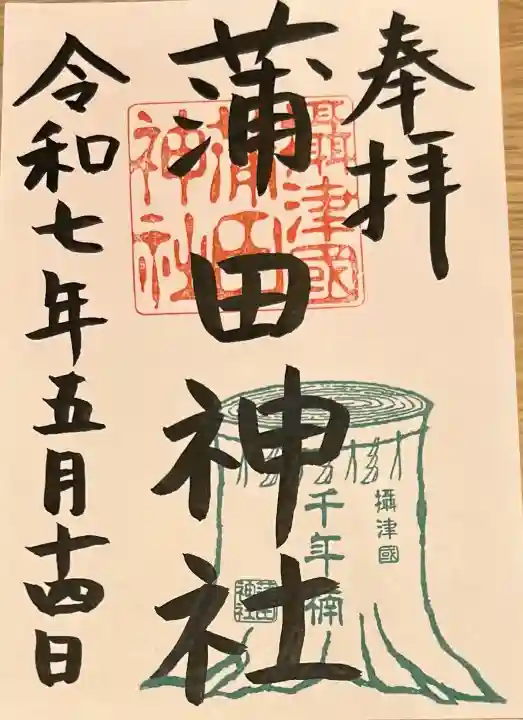 奉拝
攝津國
蒲田
神社
蒲田神社
攝津國
千年楠
蒲田
神社
令和七年五月十四日